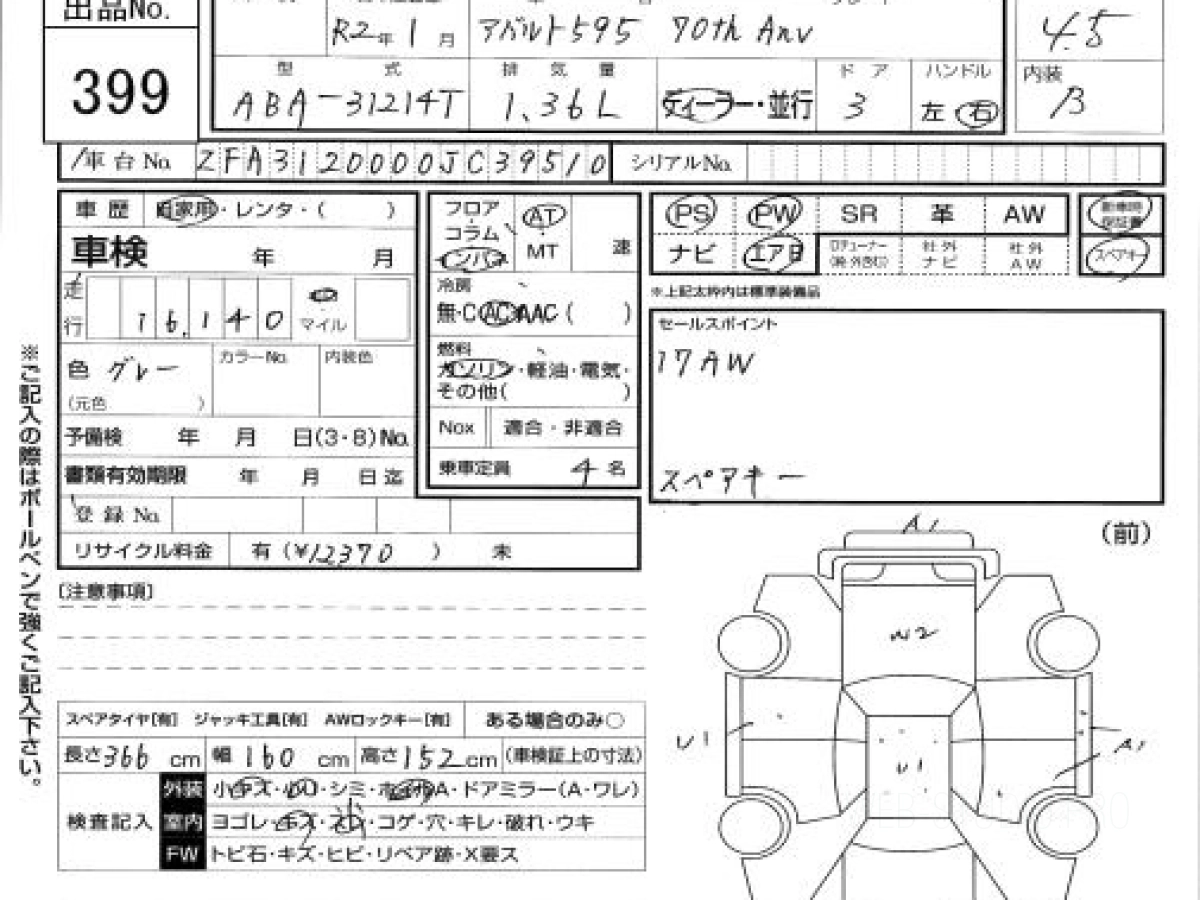 出品No.
399
R2年 1月
アバルト595 70th Anv
4.5
型式
ABA-31214T
排気量
1.36L
ディーラー・並行
ドア
3
ハンドル
左 右
内装
B
車台No.
ZFA3120000JC39510
シリアルNo.
車歴 自家用・レンタ・( )
車検 年 月
走行 16,140 マイル
色 グレー
(元色 )
カラーNo.
内装色
予備検 年 月 日(3・8)No.
書類有効期限 年 月 日迄
登録No.
リサイクル料金 有 (¥12370 ) 未
フロア
コラム
インパネ
AT
MT
速
冷房
無・C AC AAC ( )
燃料
ガソリン・軽油・電気・
その他( )
Nox 適合・非適合
乗車定員 4名
PS PW SR 革 AW
ナビ エアB
社外ナビ
社外AW
新車時保証書
スペアキー
※上記太枠内は標準装備品
セールスポイント
17AW
スペアキー
※ご記入の際はボールペンで強くご記入下さい。
[注意事項]
スペアタイヤ[有] ジャッキ工具[有] AWロックキー[有] ある場合のみ○
長さ366cm 幅160cm 高さ152cm (車検証上の寸法)
検査記入
外装 小キズ・凹・シミ・ホイルA・ドアミラー(A・ワレ)
室内 ヨゴレ・キズ・スレ・コゲ・穴・キレ・破れ・ウキ
FW トビ石・キズ・ヒビ・リペア跡・X要ス
(前)
A1
W2
U1
U1
A1